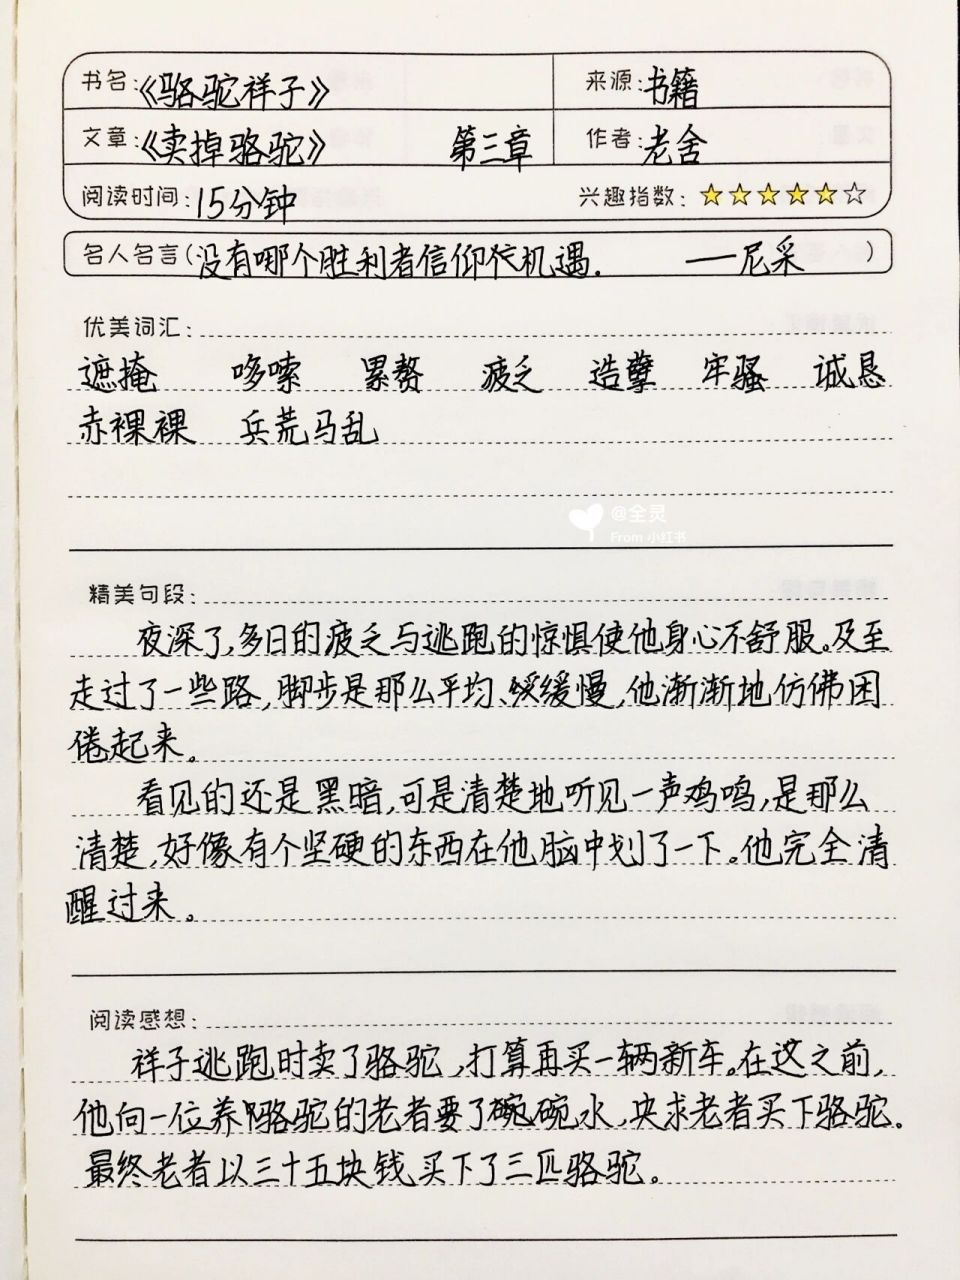 书名:《骆驼祥子》 来源:书籍
文章:《卖掉骆驼》 第三章 作者:老舍
阅读时间:15分钟 兴趣指数:
名人名言(没有哪个胜利者信仰机遇. ——尼采)
优美词汇:
遮掩 哆嗦 累赘 疲乏 造孽 牢骚 诚恳
赤裸裸 兵荒马乱
@全灵
From 小红书
精美句段:
夜深了,多日的疲乏与逃跑的惊惧使他身心不舒服。及至
走过了一些路,脚步是那么平均、缓缓慢,他渐渐地仿佛困
倦起来。
看见的还是黑暗,可是清楚地听见一声鸡鸣,是那么
清楚,好像有个坚硬的东西在他脑中划了一下。他完全清
醒过来。
阅读感想:
祥子逃跑时卖了骆驼,打算再买一辆新车。在这之前,
他向一位养骆驼的老者要了碗碗水,央求老者买下骆驼。
最终老者以三十五块钱买下了三匹骆驼。